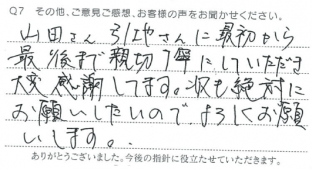 Q7 その他、ご意見ご感想、お客様の声をお聞かせください。
山田さん 引地さんに最初から
最後まで親切丁寧にしていただき
大変感謝してます。次も絶対に
お願いしたいので、よろしくお願
いします。
ありがとうございました。今後の指針に役立たせていただきます。